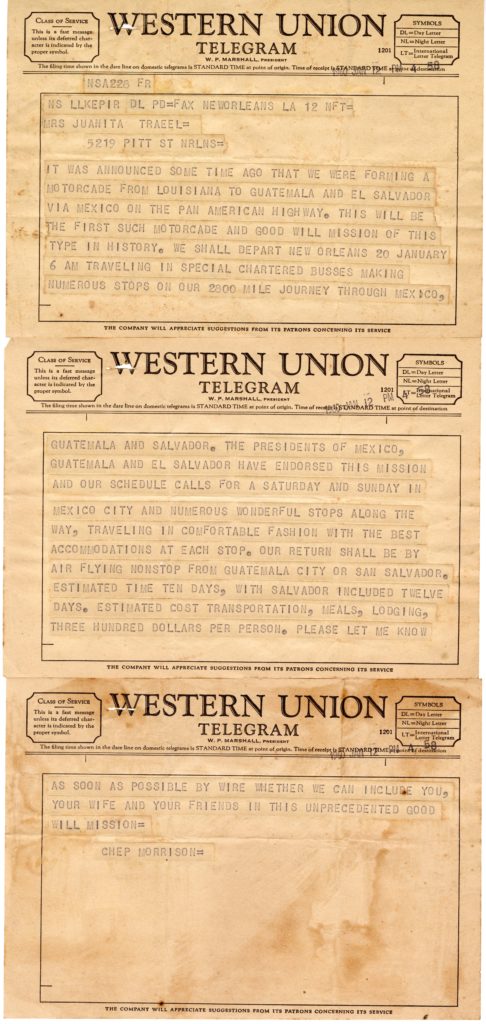 WESTERN UNION
TELEGRAM
W. P. MARSHALL, PRESIDENT
CLASS OF SERVICE
This is a fast message
unless its deferred char-
acter is indicated by the
proper symbol.
SYMBOLS
DL=Day Letter
NL=Night Letter
LT=International
Letter Telegram
1201
The filing time shown in the date line on domestic telegrams is STANDARD TIME at point of origin. Time of receipt is STANDARD TIME at point of destination
1960 JAN 12 PM 4 58
NSA228 FR
NS LLKEPIR DL PD=FAX NEWORLEANS LA 12 NFT=
MRS JUANITA TRAEEL=
5219 PITT ST NRLNS=
IT WAS ANNOUNCED SOME TIME AGO THAT WE WERE FORMING A
MOTORCADE FROM LOUISIANA TO GUATEMALA AND EL SALVADOR
VIA MEXICO ON THE PAN AMERICAN HIGHWAY. THIS WILL BE
THE FIRST SUCH MOTORCADE AND GOOD WILL MISSION OF THIS
TYPE IN HISTORY. WE SHALL DEPART NEW ORLEANS 20 JANUARY
6 AM TRAVELING IN SPECIAL CHARTERED BUSSES MAKING
NUMEROUS STOPS ON OUR 2800 MILE JOURNEY THROUGH MEXICO,
THE COMPANY WILL APPRECIATE SUGGESTIONS FROM ITS PATRONS CONCERNING ITS SERVICE
WESTERN UNION
TELEGRAM
W. P. MARSHALL, PRESIDENT
CLASS OF SERVICE
This is a fast message
unless its deferred char-
acter is indicated by the
proper symbol.
SYMBOLS
DL=Day Letter
NL=Night Letter
LT=International
Letter Telegram
1201
The filing time shown in the date line on domestic telegrams is STANDARD TIME at point of origin. Time of receipt is STANDARD TIME at point of destination
JAN 12 PM 58
GUATEMALA AND SALVADOR. THE PRESIDENTS OF MEXICO,
GUATEMALA AND EL SALVADOR HAVE ENDORSED THIS MISSION
AND OUR SCHEDULE CALLS FOR A SATURDAY AND SUNDAY IN
MEXICO CITY AND NUMEROUS WONDERFUL STOPS ALONG THE
WAY, TRAVELING IN COMFORTABLE FASHION WITH THE BEST
ACCOMMODATIONS AT EACH STOP. OUR RETURN SHALL BE BY
AIR FLYING NONSTOP FROM GUATEMALA CITY OR SAN SALVADOR.
ESTIMATED TIME TEN DAYS, WITH SALVADOR INCLUDED TWELVE
DAYS. ESTIMATED COST TRANSPORTATION, MEALS, LODGING,
THREE HUNDRED DOLLARS PER PERSON. PLEASE LET ME KNOW
THE COMPANY WILL APPRECIATE SUGGESTIONS FROM ITS PATRONS CONCERNING ITS SERVICE
WESTERN UNION
TELEGRAM
W. P. MARSHALL, PRESIDENT
CLASS OF SERVICE
This is a fast message
unless its deferred char-
acter is indicated by the
proper symbol.
SYMBOLS
DL=Day Letter
NL=Night Letter
LT=International
Letter Telegram
1201
The filing time shown in the date line on domestic telegrams is STANDARD TIME at point of origin. Time of receipt is STANDARD TIME at point of destination
JAN 12 PM 4 58
AS SOON AS POSSIBLE BY WIRE WHETHER WE CAN INCLUDE YOU,
YOUR WIFE AND YOUR FRIENDS IN THIS UNPRECEDENTED GOOD
WILL MISSION=
CHEP MORRISON=
THE COMPANY WILL APPRECIATE SUGGESTIONS FROM ITS PATRONS CONCERNING ITS SERVICE